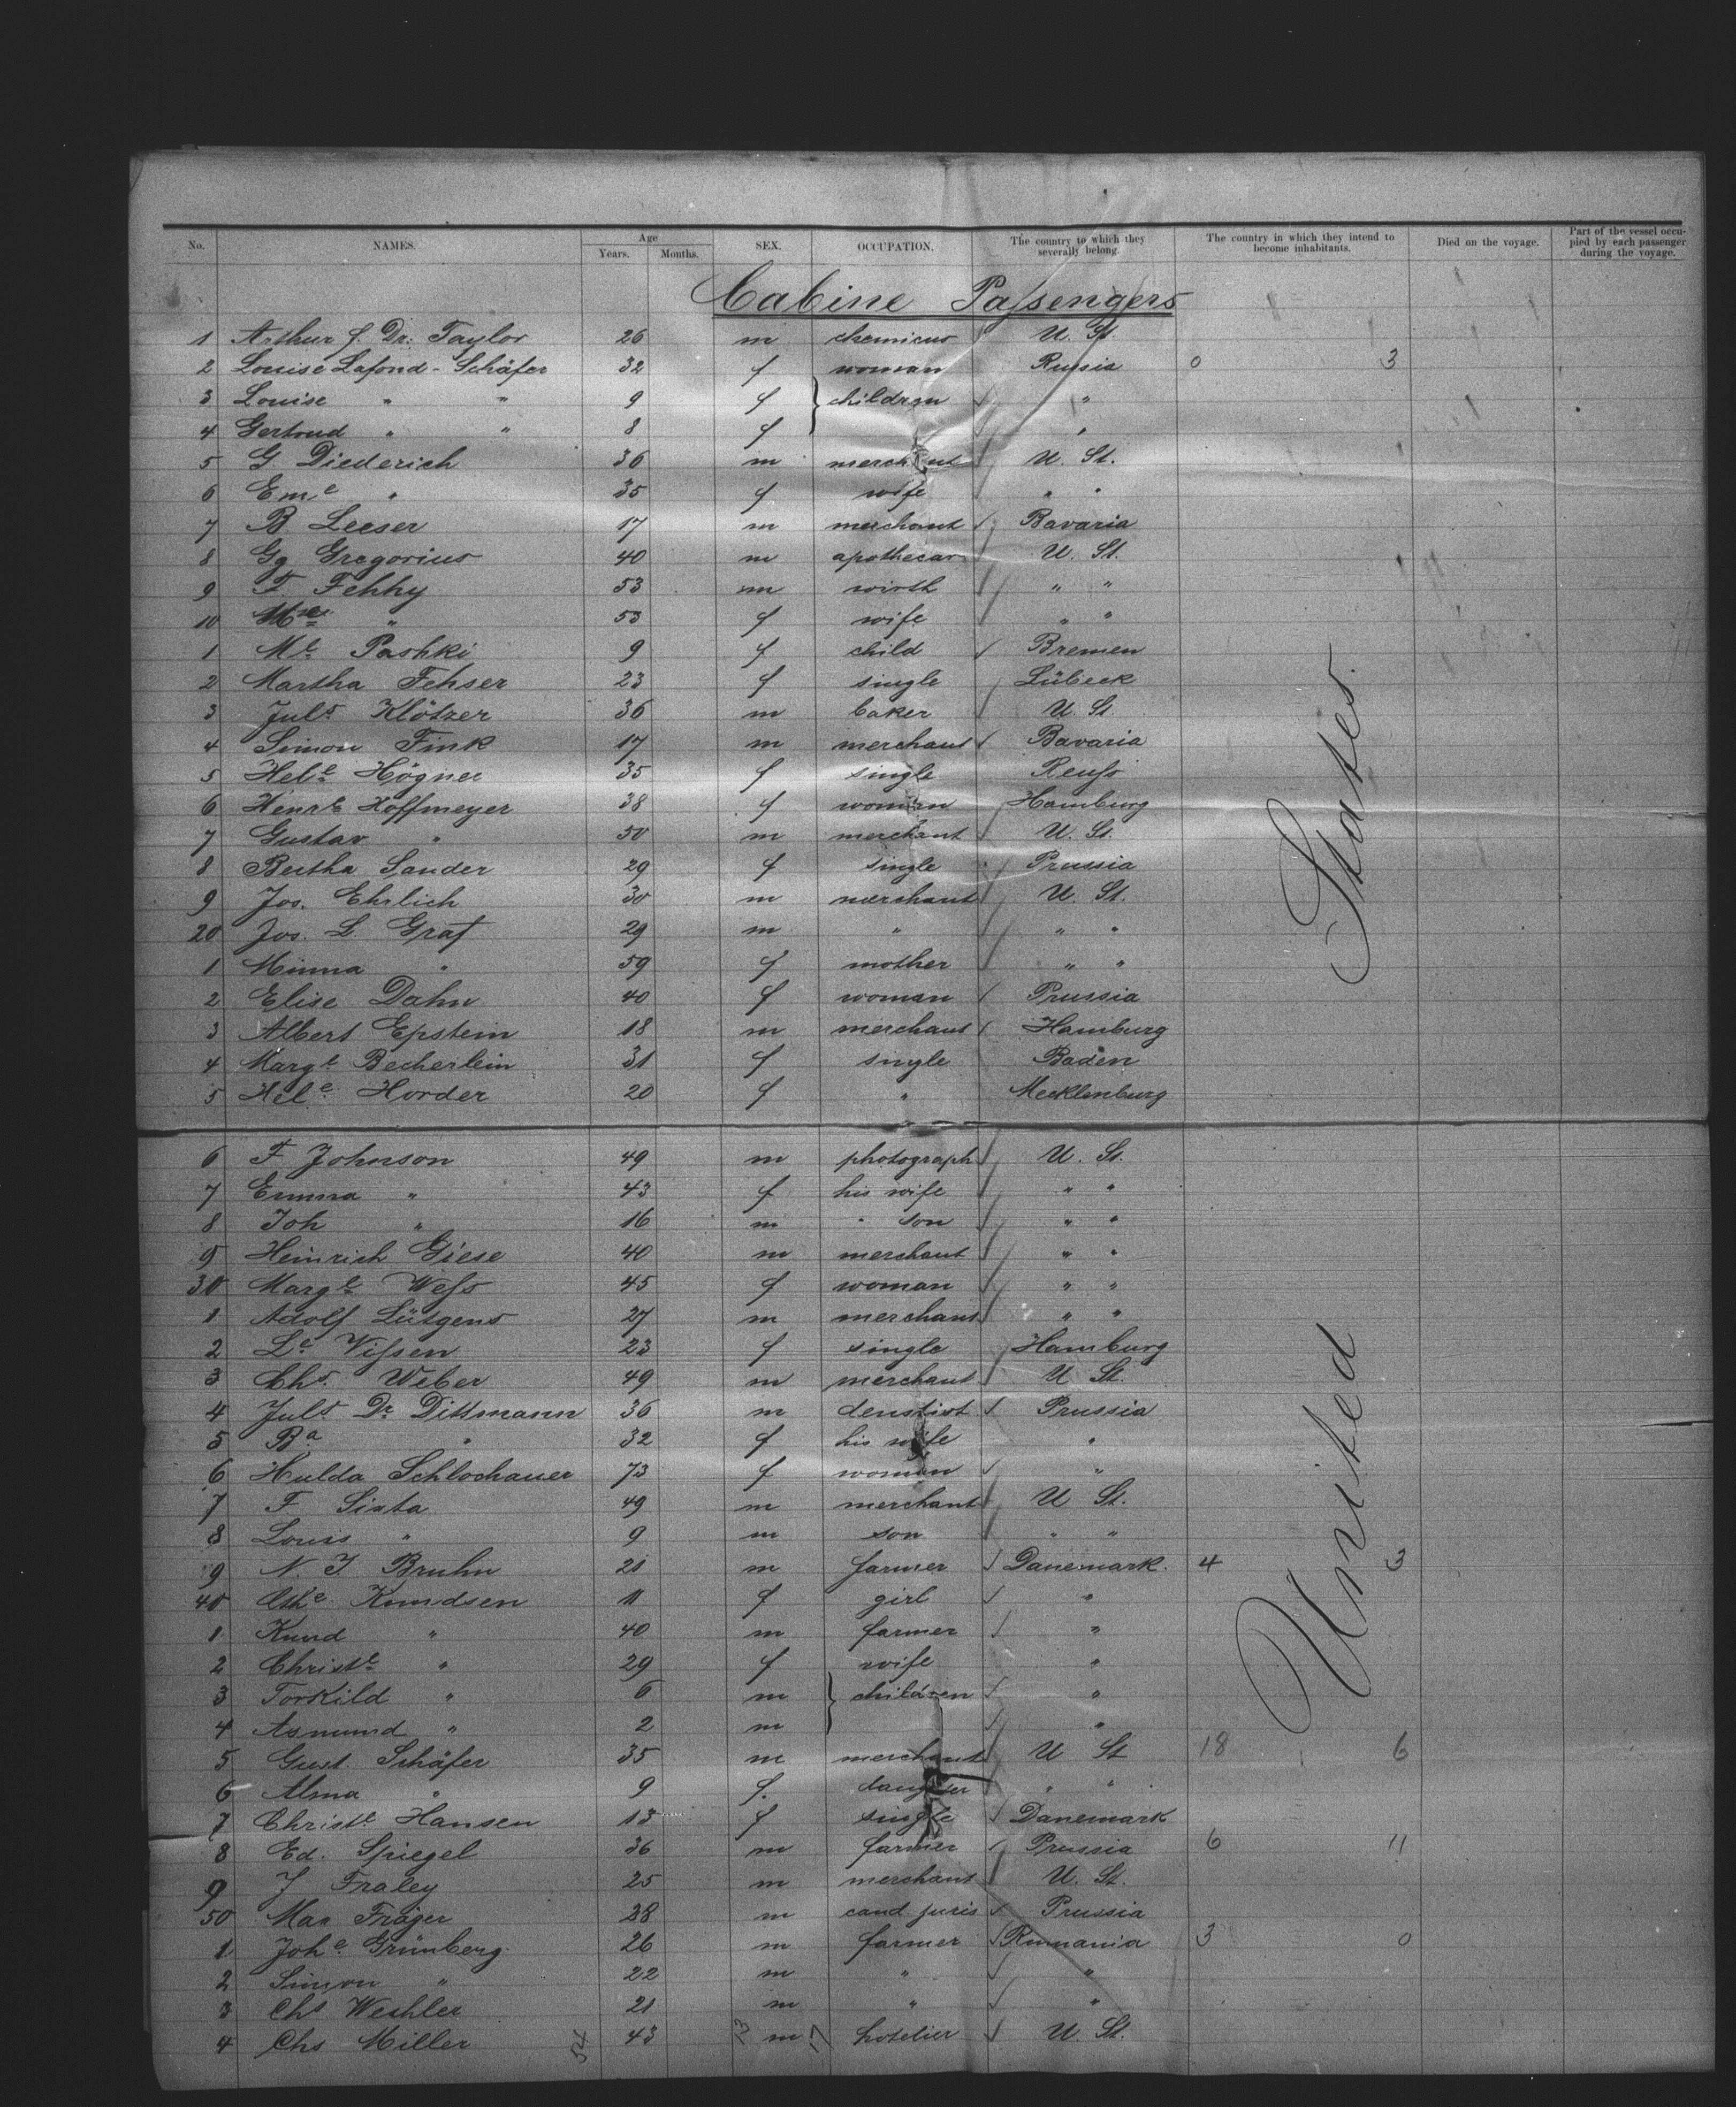 No. NAMES. Age Years. Months. SEX. OCCUPATION. The country to which they severally belong. The country in which they intend to become inhabitants. Died on the voyage. Part of the vessel occupied by each passenger during the voyage.
Cabine Passengers
1 Arthur f. Dr. Taylor 26 m chemicus U. St.
2 Louise Lafond-Schäfer 32 f woman Russia 0 3
3 Louise " " 9 f } children "
4 Gertrud " " 8 f "
5 G Diederich 36 m merchant U. St.
6 Eme " 35 f wife " "
7 B. Leeser 17 m merchant Bavaria
8 Gg Gregorius 40 m apothecar U. St.
9 F. Fehhy 53 m wirth " "
10 Me " 53 f wife " "
1 Me Pashki 9 f child Bremen
2 Martha Fehser 23 f single Lübeck
3 Juls Klötzer 36 m baker U. St.
4 Simon Fink 17 m merchant Bavaria
5 Hele Högner 35 f single Reuss
6 Henrte Hoffmeyer 38 f woman Hamburg
7 Gustav " 50 m merchant U. St.
8 Bertha Sander 29 f single Prussia
9 Jos. Ehrlich 30 m merchant U. St.
20 Jos. L. Graf 29 m " " "
1 Minna " 59 f mother " "
2 Elise Dahn 40 f woman Prussia
3 Albert Epstein 18 m merchant Hamburg
4 Margte Becherlein 31 f single Baden
5 Hele Horder 20 f " Mecklenburg
6 F Johnson 49 m photograph U. St.
7 Emma " 43 f his wife " "
8 Joh " 16 m " son " "
9 Heinrich Giese 40 m merchant " "
30 Margte Wess 45 f woman " "
1 Adolf Lütgens 27 m merchant " "
2 Le Vissen 23 f single Hamburg
3 Chs. Weber 49 m merchant U St.
4 Juls Dr Dittmann 36 m dentist Prussia
5 Ba " 32 f his wife "
6 Hulda Schlochauer 73 f woman "
7 F Sixta 49 m merchant U St.
8 Louis " 9 m son " "
9 N. J. Bruhn 21 m farmer Danemark. 4 3
40 Cthe Knudsen 11 f girl "
1 Knud " 40 m farmer "
2 Christe " 29 f wife "
3 Torkild " 6 m } children "
4 Asmund " 2 m "
5 Gust. Schäfer 35 m merchant U St 18 6
6 Alma " 9 f. daughter " "
7 Christe Hansen 13 f single Danemark
8 Ed. Spiegel 36 m farmer Prussia 6 11
9 J Fraley 25 m merchant U. St.
50 Max Träger 28 m cand juris Prussia
1 Johe Grünberg 26 m farmer Rumania 3 0
2 Simon " 22 m " "
3 Chs Weshler 21 m " "
4 Chs Miller 54 43 13 m 17 hotelier U St.
United States.